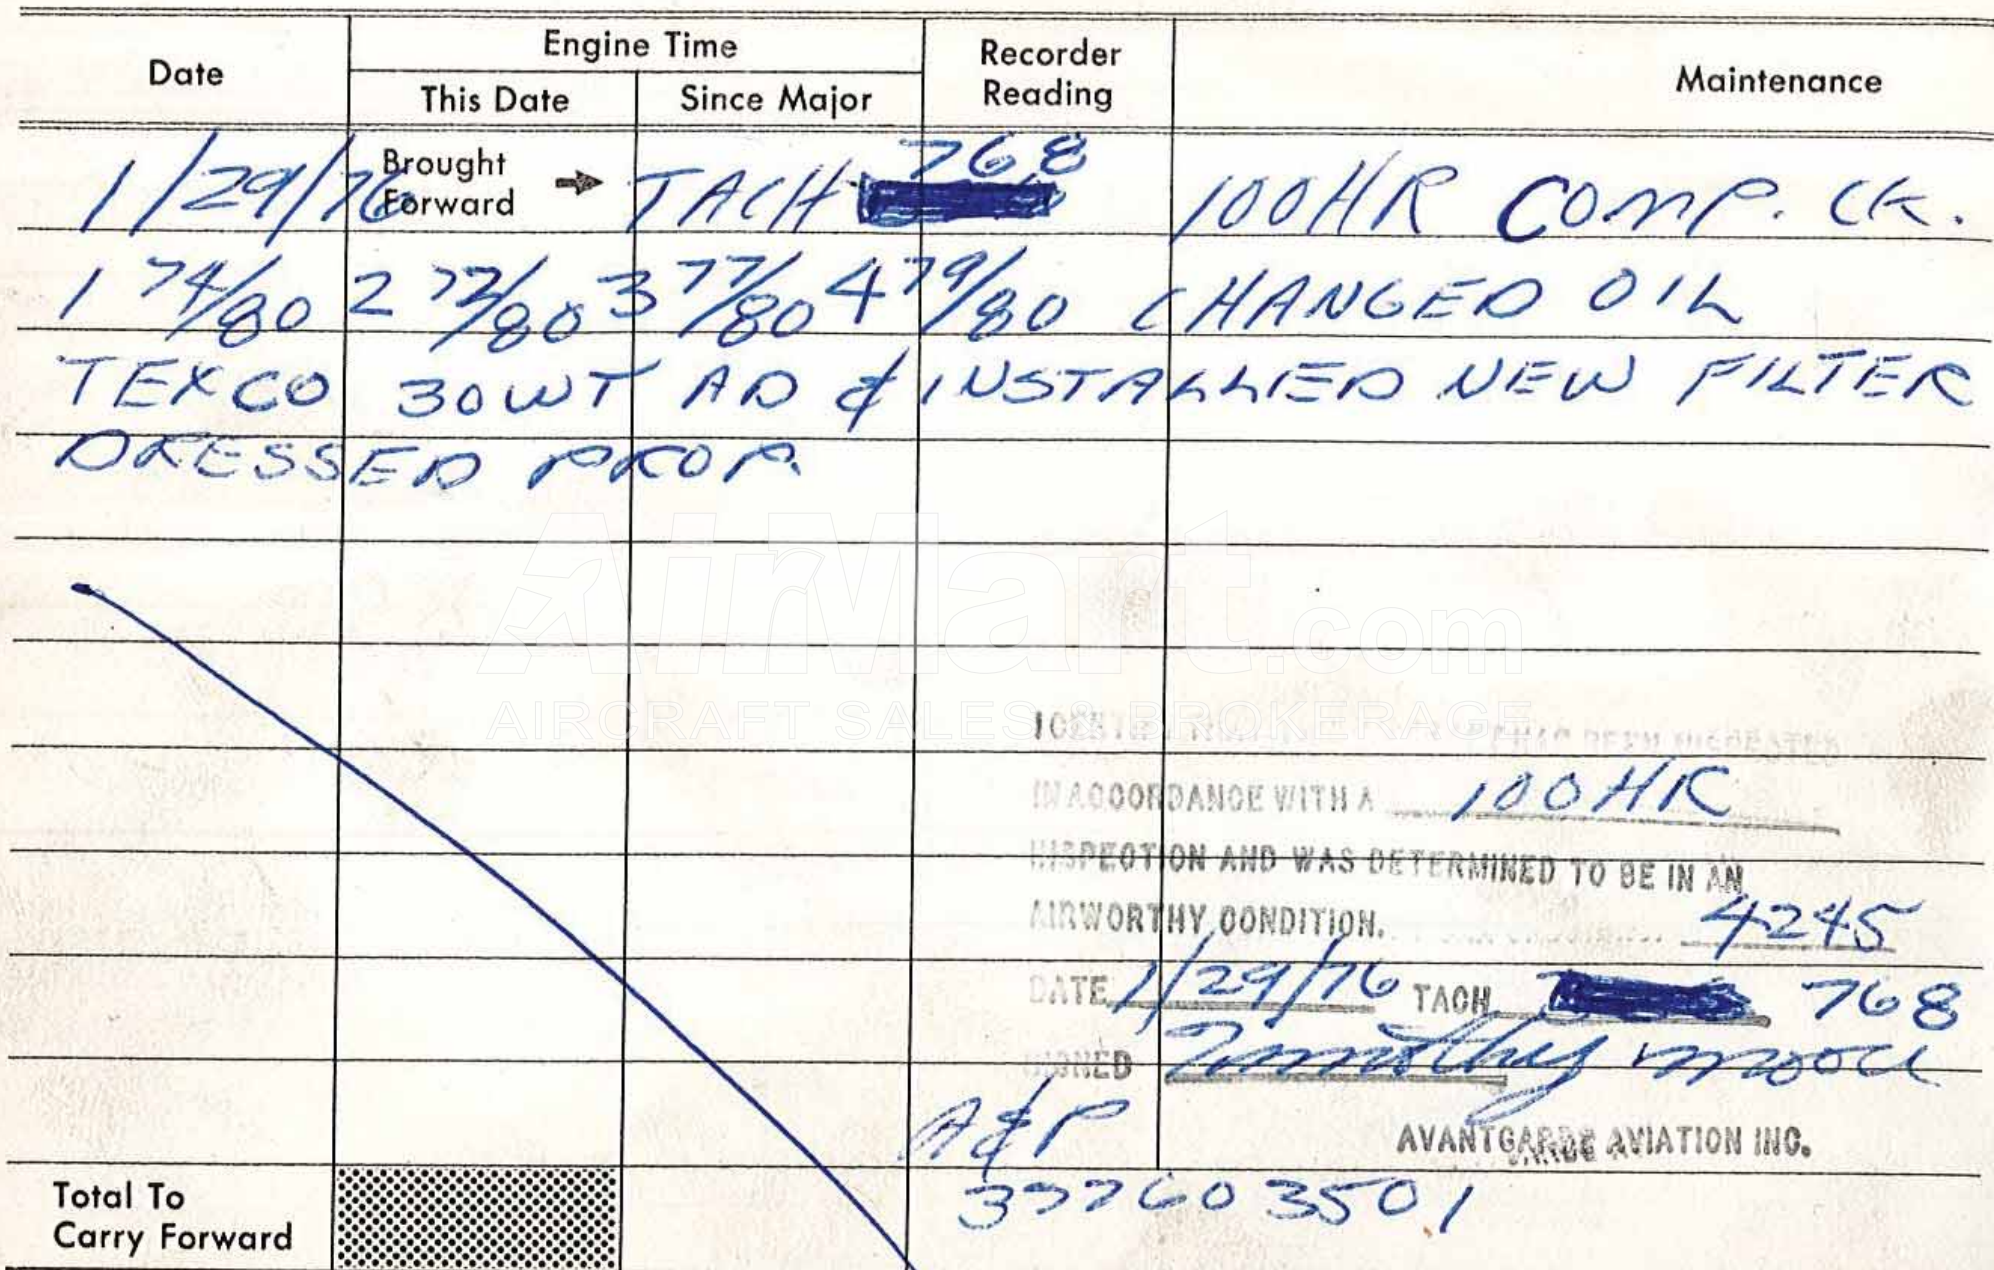 Date Engine Time Recorder Reading Maintenance
This Date Since Major
768
1/29/76 Brought Forward → TACH 100HR COMP. CK.
1 74/80 2 72/80 3 77/80 4 79/80 CHANGED OIL
TEXCO 30WT AD & INSTALLED NEW FILTER
DRESSED PROP.
AirMart.com
AIRCRAFT SALES & BROKERAGE
HAS BEEN INSPECTED
IN ACCORDANCE WITH A 100HR
INSPECTION AND WAS DETERMINED TO BE IN AN
AIRWORTHY CONDITION. 4245
DATE 1/29/76 TACH 768
SIGNED Timothy
A&P AVANTGARDE AVIATION INC.
337603501
Total To
Carry Forward